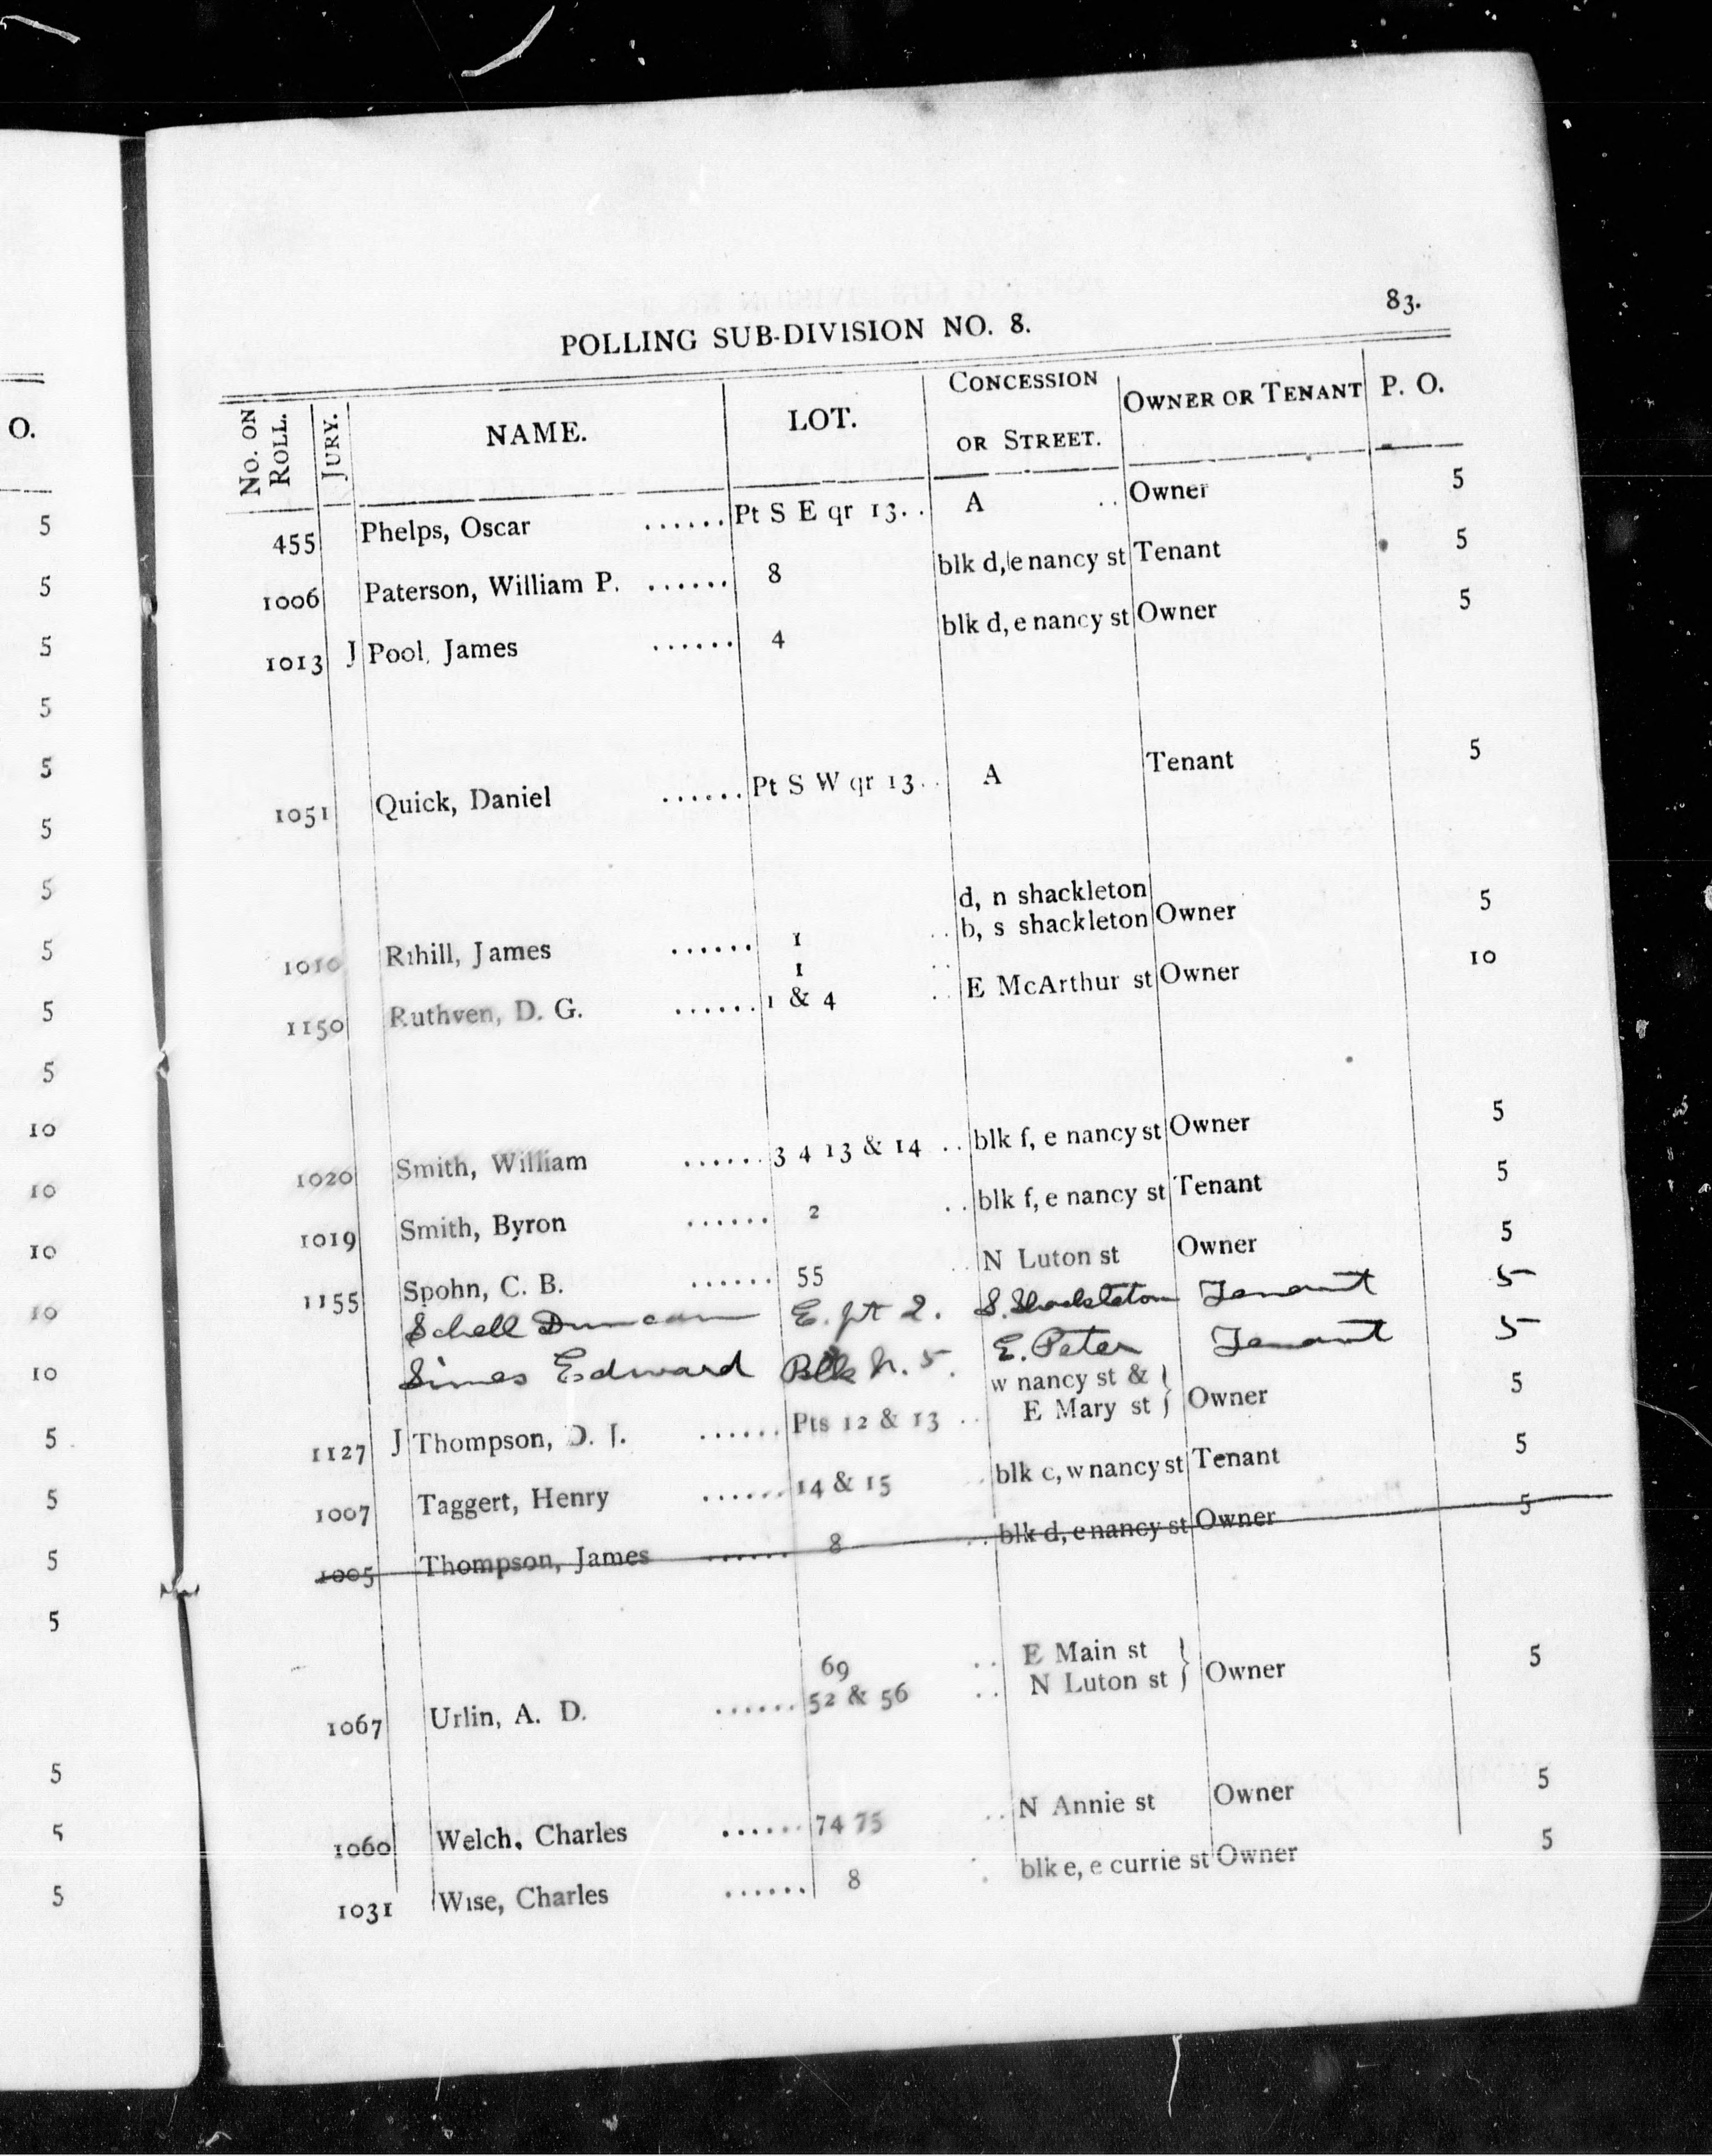 O.
5
5
5
5
5
5
5
5
5
5
10
10
10
10
10
5
5
5
5
5
5
5
83.
POLLING SUB-DIVISION NO. 8.
No. on Roll. Jury. NAME. LOT. Concession or Street. Owner or Tenant P. O.
455 Phelps, Oscar ...... Pt S E qr 13. . A .. Owner 5
1006 Paterson, William P. ...... 8 blk d, e nancy st Tenant 5
1013 J Pool, James ...... 4 blk d, e nancy st Owner 5
1051 Quick, Daniel ...... Pt S W qr 13. . A Tenant 5
d, n shackleton
1010 Rihill, James ...... 1 .. b, s shackleton Owner 5
1 ..
1150 Ruthven, D. G. ...... 1 & 4 .. E McArthur st Owner 10
1020 Smith, William ...... 3 4 13 & 14 .. blk f, e nancy st Owner 5
1019 Smith, Byron ...... 2 .. blk f, e nancy st Tenant 5
1155 Spohn, C. B. ...... 55 .. N Luton st Owner 5
Schell Duncan E. pt 2. S. Shackleton Tenant 5
Simes Edward Blk N. 5. E. Peter Tenant 5
w nancy st & }
1127 J Thompson, D. J. ...... Pts 12 & 13 .. E Mary st } Owner 5
1007 Taggert, Henry ...... 14 & 15 .. blk c, w nancy st Tenant 5
1005 Thompson, James ...... 8 .. blk d, e nancy st Owner 5
69 .. E Main st }
1067 Urlin, A. D. ...... 52 & 56 .. N Luton st } Owner 5
1060 Welch, Charles ...... 74 75 .. N Annie st Owner 5
1031 Wise, Charles ...... 8 . blk e, e currie st Owner 5